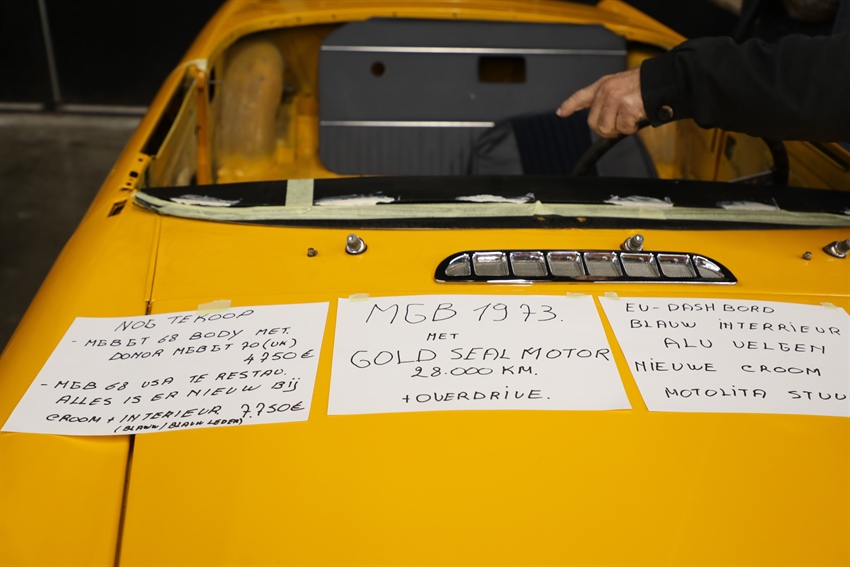 NOG TE KOOP
- MGBGT 68 BODY MET.
DONOR MGBGT 70 (UK)
4750€
- MGB 68 USA TE RESTAU.
ALLES IS ER NIEUW BIJ
CROOM + INTERIEUR 7.750€
(BLAUW/BLAUW LEDER)
MGB 1973.
MET
GOLD SEAL MOTOR
28.000 KM.
+ OVERDRIVE.
EU-DASHBORD
BLAUW INTERRIEUR
ALU VELGEN
NIEUWE CROOM
MOTOLITA STUU